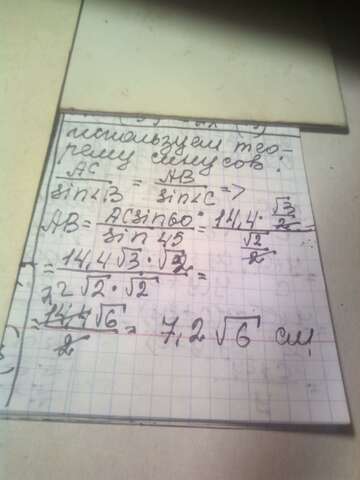 используем тео-
рему синусов:
AC/sin∠B = AB/sin∠C =>
AB = ACsin60°/sin45 = 14,4·√3/2 / √2/2 =
= 14,4√3·√2/2√2·√2 =
= 14,4√6/2 = 7,2√6 см